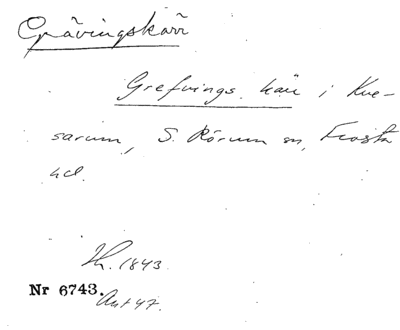 Grävingskärr
Grefvings kärr i Kve-
sarum, S. Rörum sn, Frosta
hd.
Th. 1843.
Nr 6743.
Ant 47.